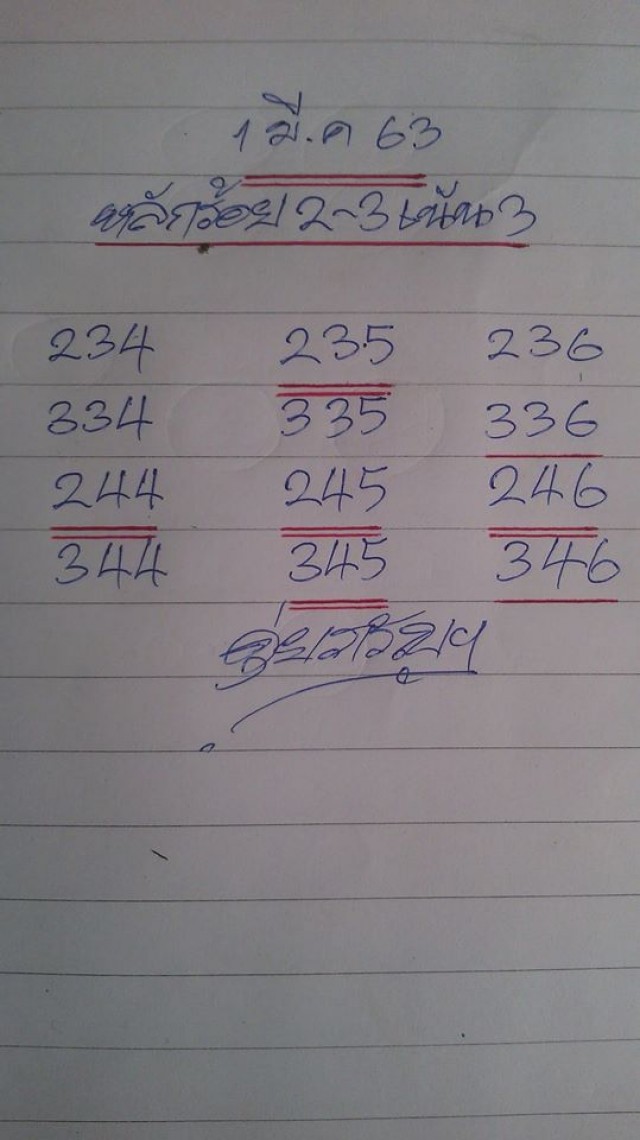 1 มี.ค 63
หลักร้อย 2-3 เน้น 3
234 235 236
334 335 336
244 245 246
344 345 346